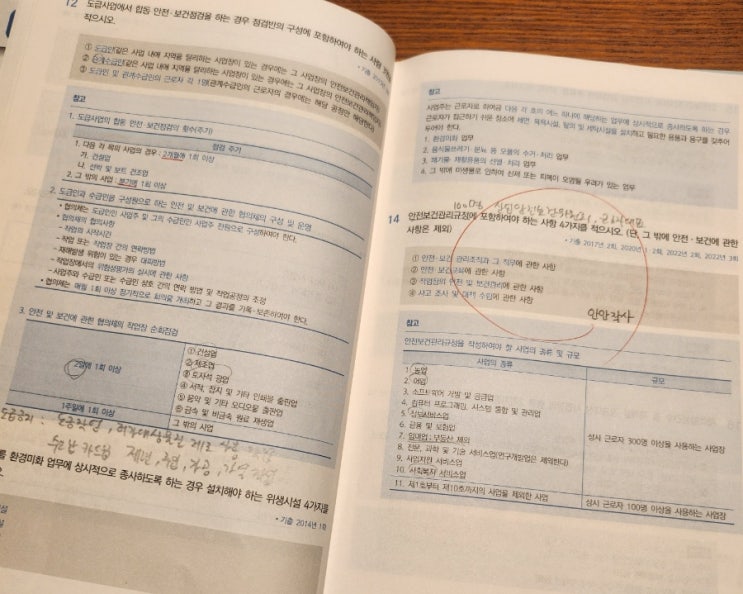 12 도급사업에서 합동 안전·보건점검을 하는 경우 점검반의 구성에 포함하여야 하는 사항
적으시오.
① 도급인(같은 사업 내에 지역을 달리하는 사업장이 있는 경우에는 그 사업장의 안전보건관리책임자)
② 관계수급인(같은 사업 내에 지역을 달리하는 사업장이 있는 경우에는 그 사업장의 안전보건관리책임자)
③ 도급인 및 관계수급인의 근로자 각 1명(관계수급인의 근로자의 경우에는 해당 공정만 해당한다)
참고
1. 도급사업의 합동 안전·보건점검의 횟수(주기)
점검 주기
1. 다음 각 목의 사업의 경우 : 2개월에 1회 이상
가. 건설업
나. 선박 및 보트 건조업
2. 그 밖의 사업 : 분기에 1회 이상
2. 도급인과 수급인을 구성원으로 하는 안전 및 보건에 관한 협의체의 구성 및 운영
• 협의체는 도급인인 사업주 및 그의 수급인인 사업주 전원으로 구성하여야 한다.
• 협의체의 협의사항
- 작업의 시작시간
- 작업 또는 작업장 간의 연락방법
- 재해발생 위험이 있는 경우 대피방법
- 작업장에서의 위험성평가의 실시에 관한 사항
- 사업주와 수급인 또는 수급인 상호 간의 연락 방법 및 작업공정의 조정
• 협의체는 매월 1회 이상 정기적으로 회의를 개최하고 그 결과를 기록·보존하여야 한다.
3. 안전 및 보건에 관한 협의체의 작업장 순회점검
2일에 1회 이상
① 건설업
② 제조업
③ 토사석 광업
④ 서적, 잡지 및 기타 인쇄물 출판업
⑤ 음악 및 기타 오디오물 출판업
⑥ 금속 및 비금속 원료 재생업
1주일에 1회 이상
그 밖의 사업
를 환경미화 업무에 상시적으로 종사하도록 하는 경우 설치해야 하는 위생시설 4가지를
오.
• 기출 2014년 1회
참고
사업주는 근로자로 하여금 다음 각 호의 어느 하나에 해당하는 업무에 상시적으로 종사하도록 하는 경우
근로자가 접근하기 쉬운 장소에 세면·목욕시설, 탈의 및 세탁시설을 설치하고 필요한 용품과 용구를 갖추어
두어야 한다.
1. 환경미화 업무
2. 음식물쓰레기·분뇨 등 오물의 수거·처리 업무
3. 폐기물·재활용품의 선별·처리 업무
4. 그 밖에 미생물로 인하여 신체 또는 피복이 오염될 우려가 있는 업무
14 안전보건관리규정에 포함하여야 하는 사항 4가지를 적으시오. (단, 그 밖에 안전·보건에 관한
사항은 제외)
• 기출 2017년 2회, 2020년 1·2회, 2022년 2회, 2022년 3회
① 안전·보건 관리조직과 그 직무에 관한 사항
② 안전·보건교육에 관한 사항
③ 작업장의 안전 및 보건관리에 관한 사항
④ 사고 조사 및 대책 수립에 관한 사항
안안작사
참고
안전보건관리규정을 작성하여야 할 사업의 종류 및 규모
사업의 종류
규모
1. 농업
2. 어업
3. 소프트웨어 개발 및 공급업
4. 컴퓨터 프로그래밍, 시스템 통합 및 관리업
5. 정보서비스업
6. 금융 및 보험업
7. 임대업; 부동산 제외
8. 전문, 과학 및 기술 서비스업(연구개발업은 제외한다)
9. 사업지원 서비스업
10. 사회복지 서비스업
상시 근로자 300명 이상을 사용하는 사업장
11. 제1호부터 제10호까지의 사업을 제외한 사업
상시 근로자 100명 이상을 사용하는 사업장